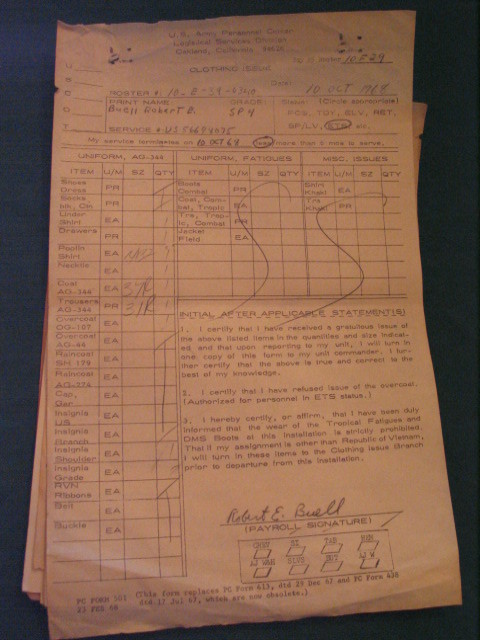 U.S. Army Personnel Center
Logistical Services Division
Oakland, California
10 E 29
CLOTHING ISSUE
ROSTER #: 10-E-39-
Date: 10 OCT 1968
PRINT NAME GRADE: Status: (Circle appropriate)
Buell Robert E. SP4 POS, TDY, SLV, RET,
SERVICE # US SP/LV, ETS etc.
My service terminates on 10 OCT 68 more than 6 mos to serve.
UNIFORM, AG-344 UNIFORM, FATIGUES MISC. ISSUES
ITEM U/M SZ QTY ITEM U/M SZ QTY ITEM U/M SZ QTY
Shoes Dress PR
Socks blk, Ctn. PR
Under Shirt EA
Drawers PR
Poplin Shirt EA
Necktie EA
Coat AG-344 EA 37R 1
Trousers AG-344 PR 31R 1
Overcoat OG-107 EA
Overcoat AG-44 EA
Raincoat SH 179 EA
Raincoat AG-274 EA
Cap, Gar. EA
Insignia US EA
Insignia Branch EA
Insignia Shoulder EA
Insignia Grade EA
RVN Ribbons EA
Belt EA
Buckle EA
Boots Combat PR
Coat, Combat, Tropic EA
Trs, Tropic, Combat PR
Jacket Field EA
Shirt Khaki EA
Trs Khaki PR
INITIAL AFTER APPLICABLE STATEMENT(S)
1. I certify that I have received a gratuitous issue of
the above listed items in the quantities and size indicat-
ed, and that upon reporting to my unit, I will turn in
one copy of this form to my unit commander. I fur-
ther certify that the above is true and correct to the
best of my knowledge.
2. I certify that I have refused issue of the overcoat.
(Authorized for personnel in ETS status.)
3. I hereby certify, or affirm, that I have been duly
informed that the wear of the Tropical Fatigues and
DMS Boots at this installation is strictly prohibited.
That if my assignment is other than Republic of Vietnam,
I will turn in these items to the Clothing Issue Branch
prior to departure from this installation.
Robert E. Buell
(PAYROLL SIGNATURE)
PC FORM 501 (This form replaces PC Form 613, dtd 29 Dec 67 and PC Form 420
23 FEB 68 dtd 17 Jul 67, which are now obsolete.)